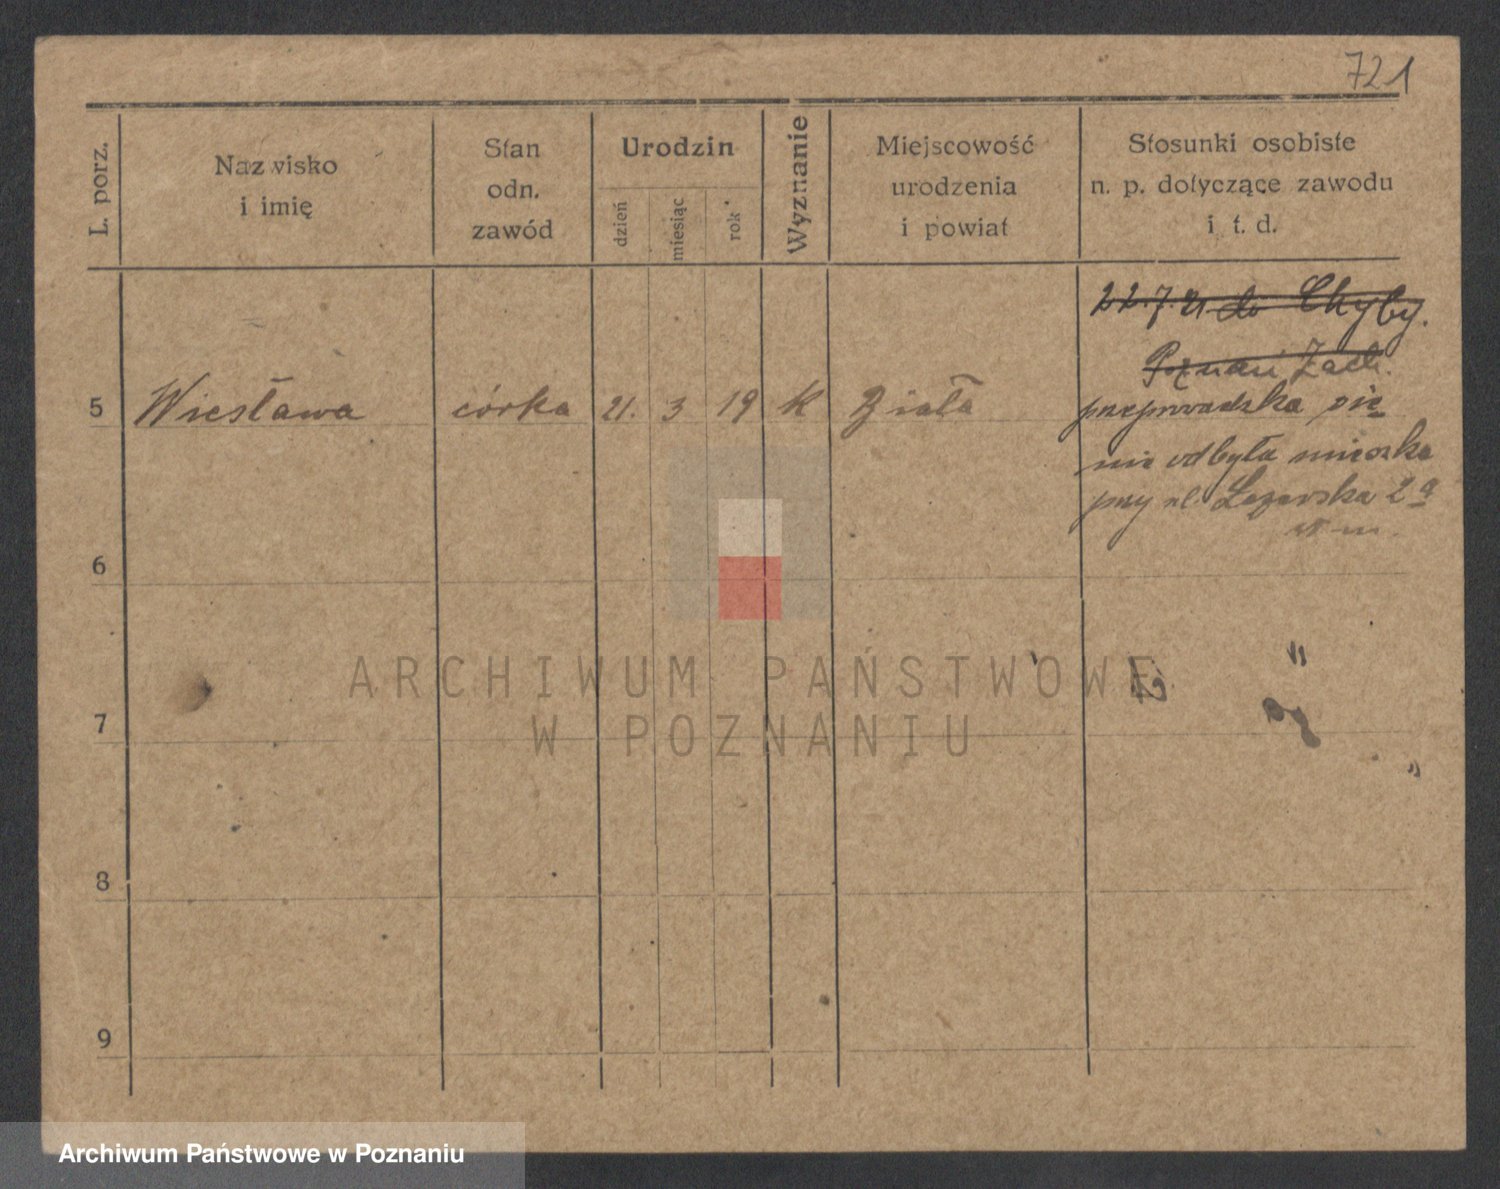 721
L. porz.
Nazwisko
i imię
Stan
odn.
zawód
Urodzin
dzień
miesiąc
rok
Wyznanie
Miejscowość
urodzenia
i powiat
Stosunki osobiste
n. p. dotyczące zawodu
i t. d.
22.7.21 do Chyby.
Poznań Zach.
5 Wiesława córka 21. 3 19 K Biała
przeprowadzka się
nie odbyła mieszka
przy ul.
6
7
8
9
ARCHIWUM PAŃSTWOWE
W POZNANIU
Archiwum Państwowe w Poznaniu